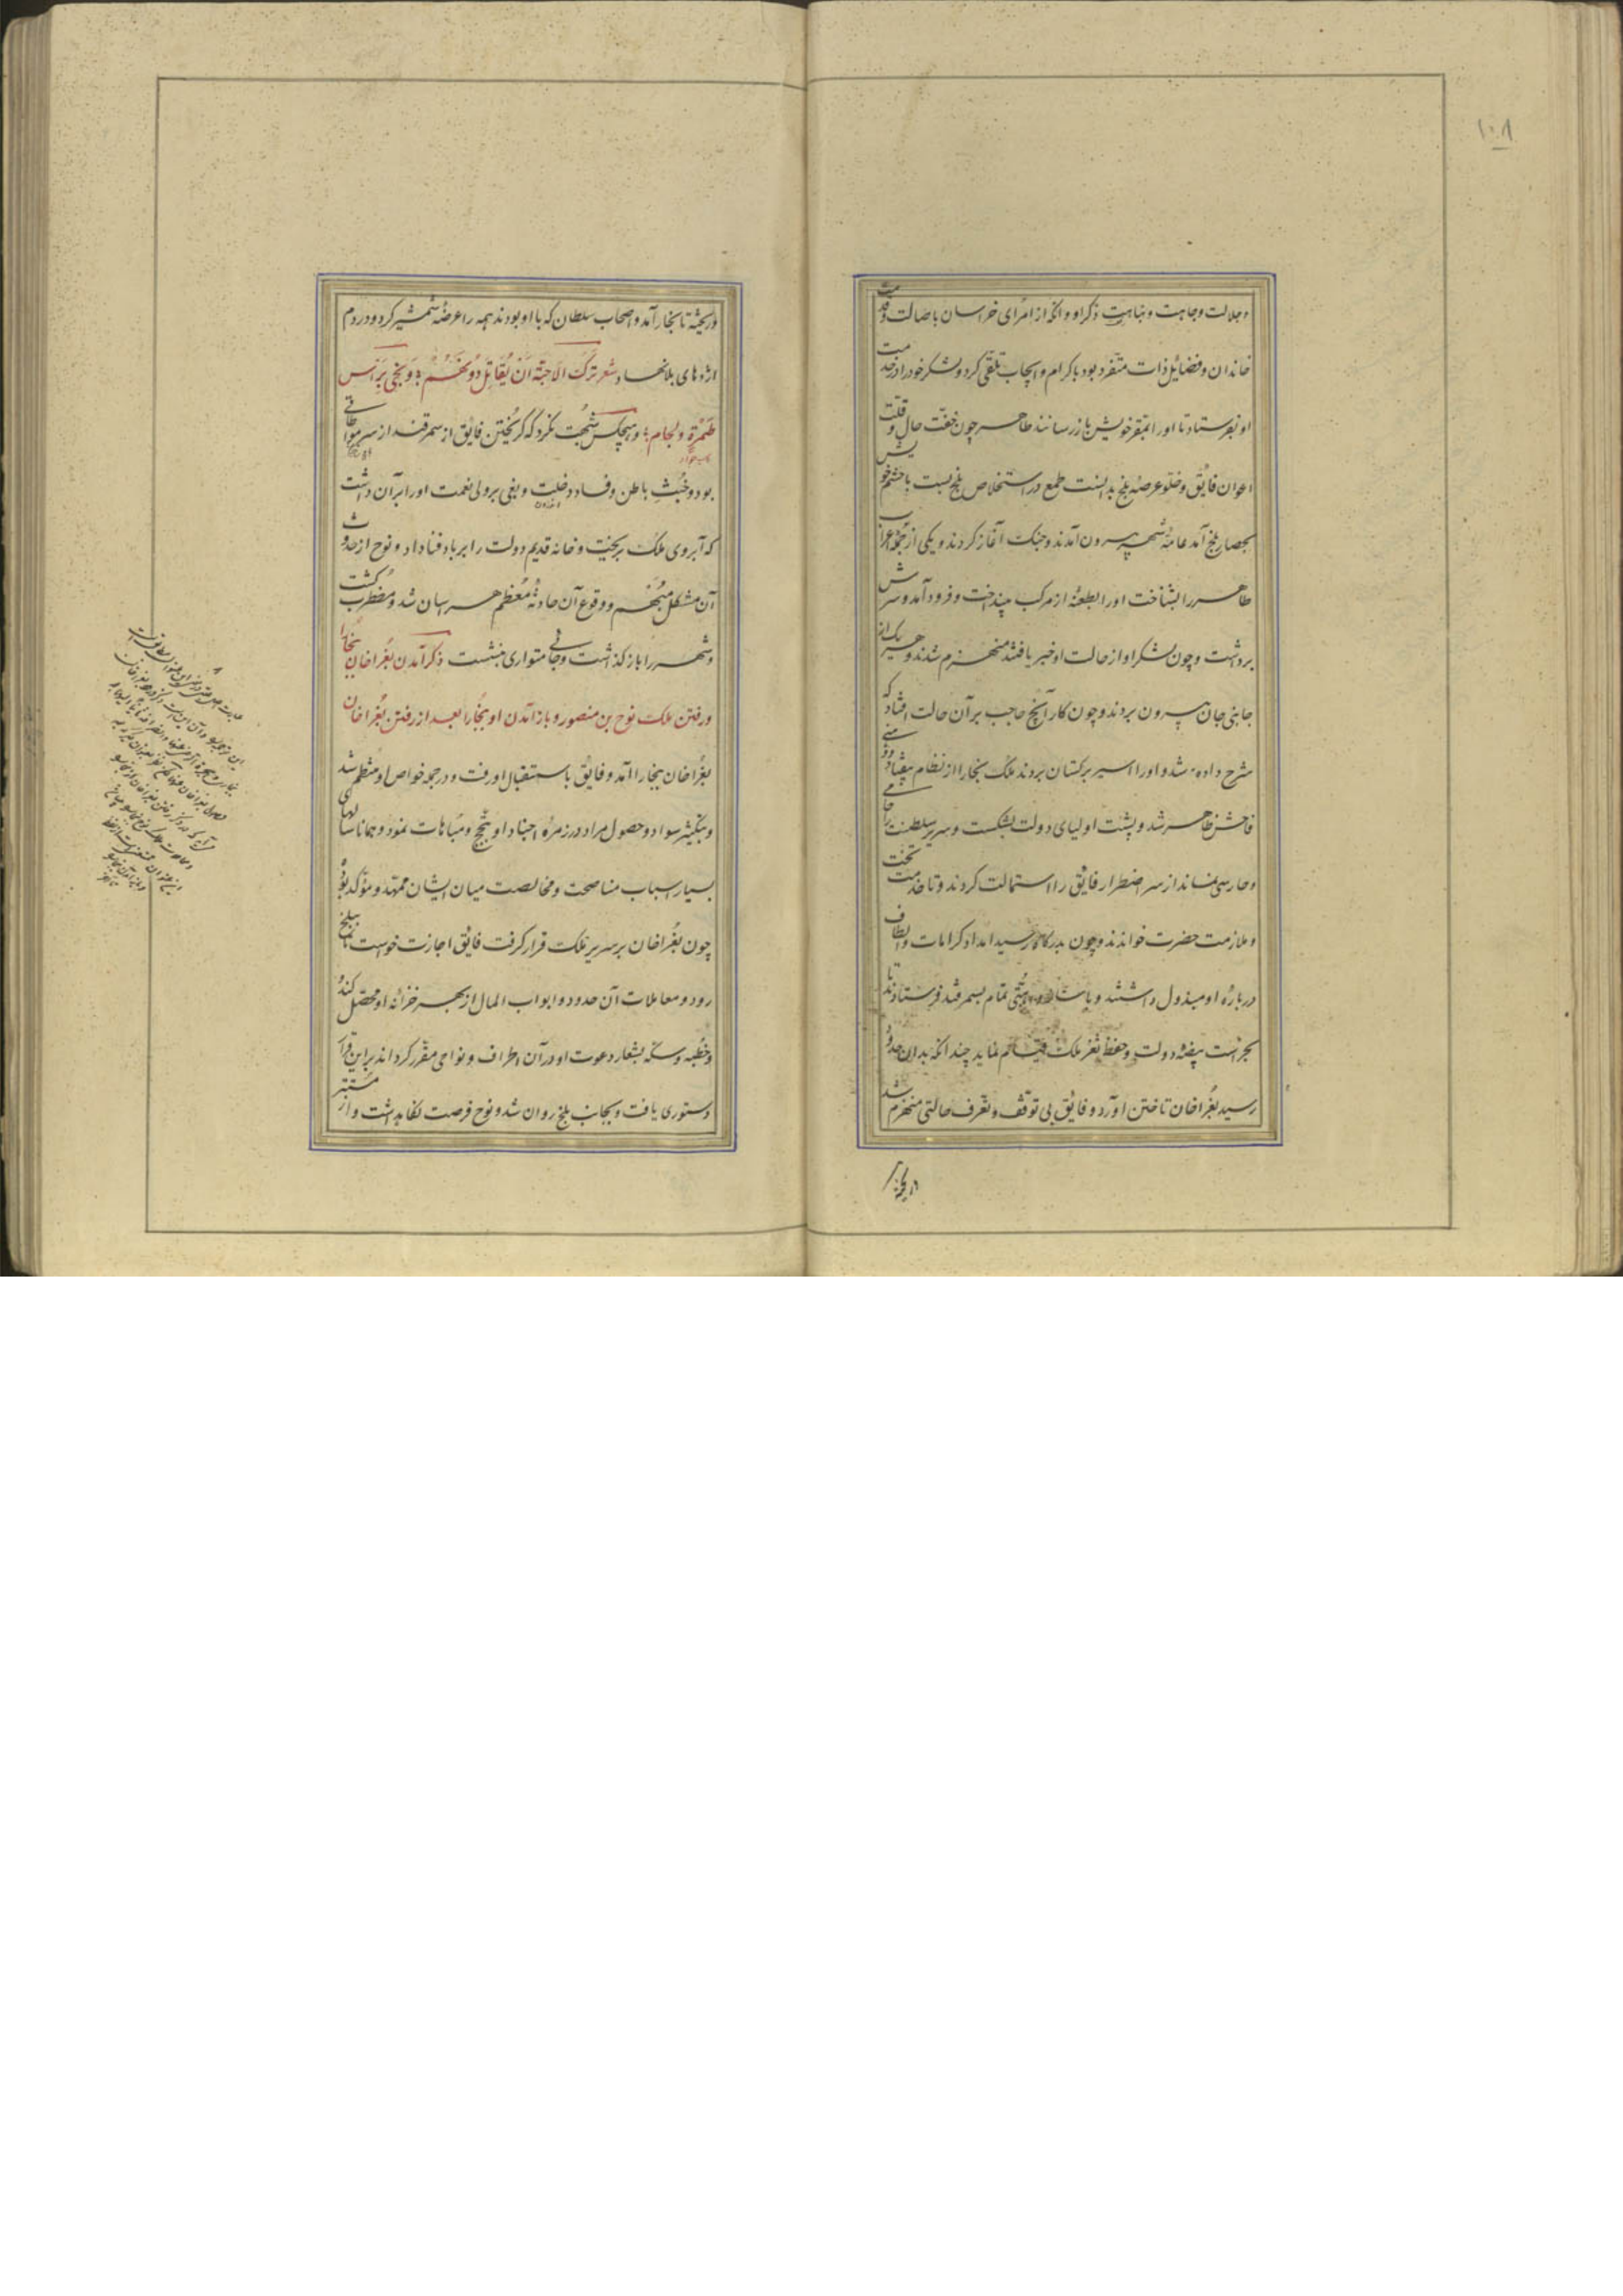 ۱۰۸
و جلالت و جاهت و نباهت ذکر او و آنکه از امرای خراسان باصالت و قدمت
خاندان و فضایل ذات متفرد بود باکرام و ایجاب تلقی کرد و لشکر خود را در خدمت
او بفرستاد تا او را بمقر خویش باز رسانند طاهر چون خفت حال و قلت
اعوان فایق و خلو عرصه بلخ بدانست طمع در استخلاص بلخ بست با حشم خویش
بحصار بلخ آمد عامه شهر بیرون آمدند و جنک آغاز کردند و یکی از جمله اعراب
طاهر را بشناخت او را بطعنه از مرکب بینداخت و فرود آمد و سرش
برداشت و چون لشکر او از حالت او خبر یافتند منهزم شدند و هر یک از
جانبی جان بیرون بردند و چون کار آنج حاجب بر آن حالت افتاد که
شرح داده شد و او را اسیر بترکستان بردند ملک بخارا از نظام بیفتاد و وهنی
فاحش ظاهر شد و پشت اولیای دولت بشکست و سریر سلطنت را حامی
و حارسی نماند از سر اضطرار فایق را استمالت کردند و تا خدمت تخت
و ملازمت حضرت خواندند و چون بدرکاه رسید امداد کرامات و الطاف
درباره او مبذول داشتند و باساز و اهبتی تمام بسمرقند فرستادند تا
بحراست بیضه دولت و حفظ ثغر ملک قیام نماید چندانکه بدان حدود
رسید بغراخان تاختن آورد و فایق بی توقف و تعرف حالتی منهزم شد
و ریخته
و ریخته تا بخارا آمد و اصحاب سلطان که با او بودند همه را عرضه شمشیر کرد و در دم
اژدهای بلا نهاد شعر ترک الاحبة ان یقاتل دونهم و نجی براس
طمرة و لجام و هیچکس شبهت نکرد که گریختن فایق از سمرقند از سر مواطاتی
بود و خبث باطن و فساد دخلت و بغی بر ولی نعمت او را بر آن داشت
که آبروی ملک بریخت و خانه قدیم دولت را بر باد فنا داد و نوح از حدوث
آن مشکل مبهم و وقوع آن حادثه معظم هراسان شد و مضطرب کشت
و شهر را باز کذاشت و جائی متواری بنشست ذکر آمدن بغراخان ببخارا
و رفتن ملک نوح بن منصور و باز آمدن او ببخارا بعد از رفتن بغراخان
بغراخان ببخارا آمد و فایق باستقبال او رفت و در جمله خواص او منتظم شد
و بتکثیر سواد و حصول مراد در زمره اجناد او تبجح و مباهات نمود و همانا سالهای
بسیار اسباب مناصحت و مخالصت میان ایشان ممهد و مؤکد بود
چون بغراخان بر سریر ملک قرار کرفت فایق اجازت خواست تا ببلخ
رود و معاملات آن حدود و ابواب المال از بهر خزانه او محصل کند
و خطبه و سکه بشعار دعوت او در آن اطراف و نواحی مقرر کرداند بر این قرار
دستوری یافت و بجانب بلخ روان شد و نوح فرصت نگاه داشت و از مستتر